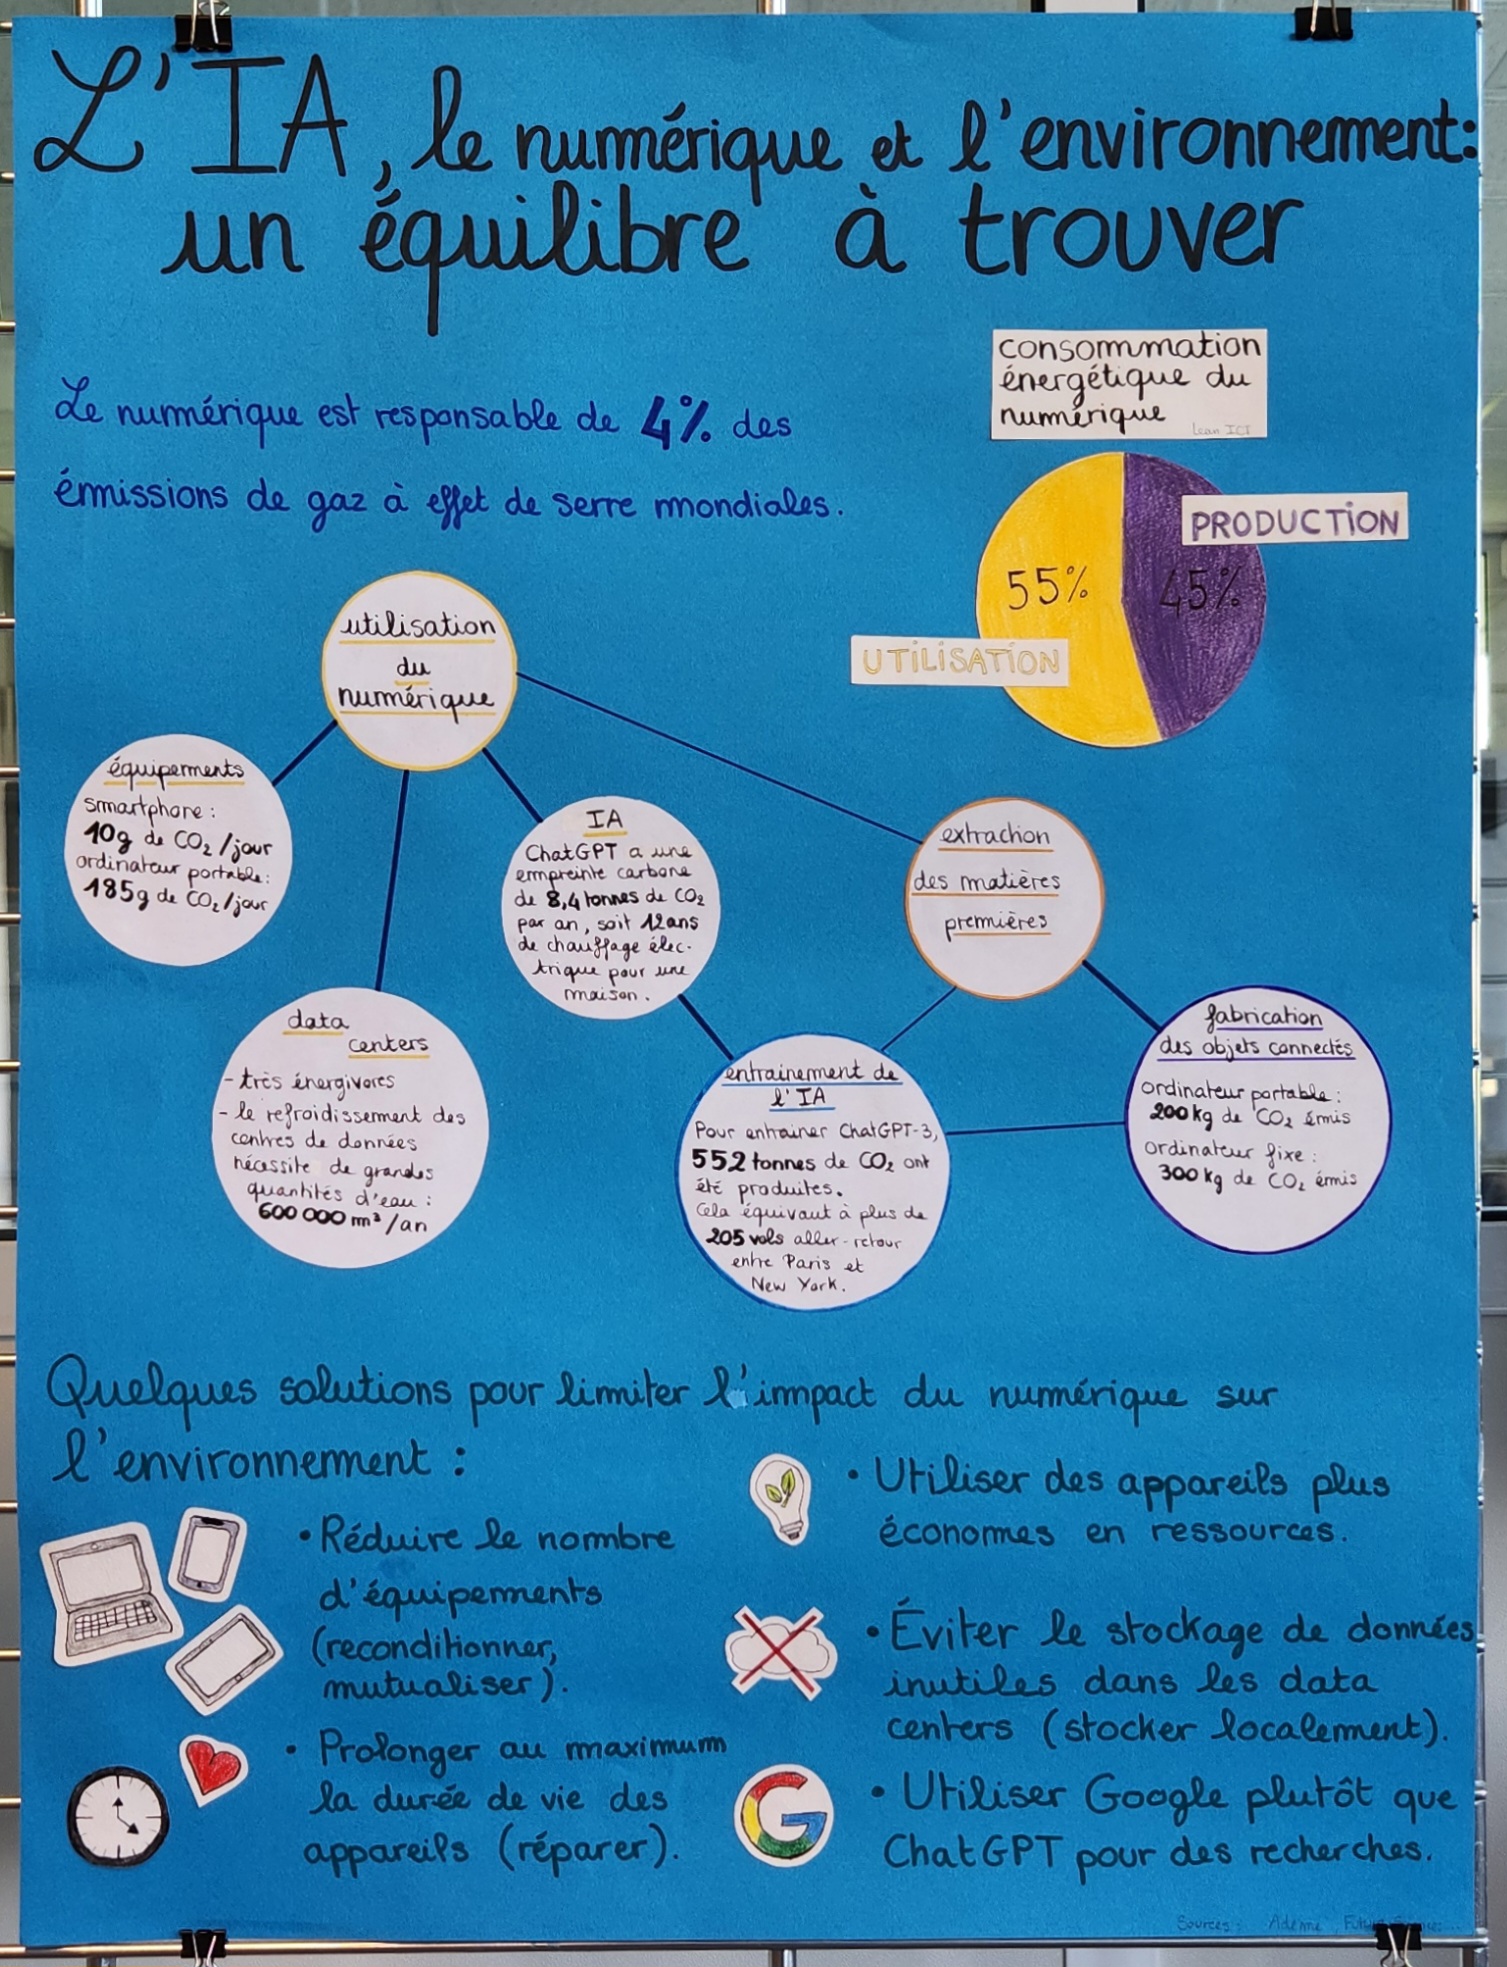 L'IA, le numérique et l'environnement:
un équilibre à trouver
Le numérique est responsable de 4% des
émissions de gaz à effet de serre mondiales.
consommation
énergétique du
numérique
Lean ICT
PRODUCTION
55%
45%
UTILISATION
utilisation
du
numérique
équipements
smartphone :
10g de CO₂/jour
ordinateur portable :
185g de CO₂/jour
IA
ChatGPT a une
empreinte carbone
de 8,4 tonnes de CO₂
par an, soit 12 ans
de chauffage élec-
trique pour une
maison.
extraction
des matières
premières
data
centers
- très énergivores
- le refroidissement des
centres de données
nécessite de grandes
quantités d'eau :
600 000 m³/an
entrainement de
l'IA
Pour entrainer ChatGPT-3,
552 tonnes de CO₂ ont
été produites.
Cela équivaut à plus de
205 vols aller-retour
entre Paris et
New York.
fabrication
des objets connectés
ordinateur portable :
200 kg de CO₂ émis
ordinateur fixe :
300 kg de CO₂ émis
Quelques solutions pour limiter l'impact du numérique sur
l'environnement :
• Réduire le nombre
d'équipements
(reconditionner,
mutualiser).
• Prolonger au maximum
la durée de vie des
appareils (réparer).
• Utiliser des appareils plus
économes en ressources.
• Éviter le stockage de données
inutiles dans les data
centers (stocker localement).
G
• Utiliser Google plutôt que
ChatGPT pour des recherches.
Sources : Ademe,